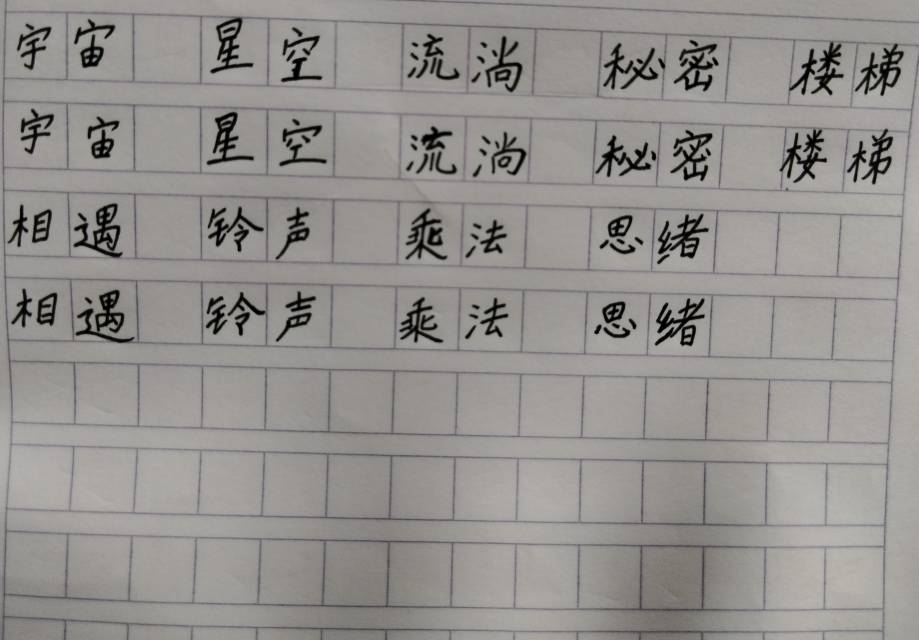 宇宙 星空 流淌 秘密 楼梯
宇宙 星空 流淌 秘密 楼梯
相遇 铃声 乘法 思绪
相遇 铃声 乘法 思绪